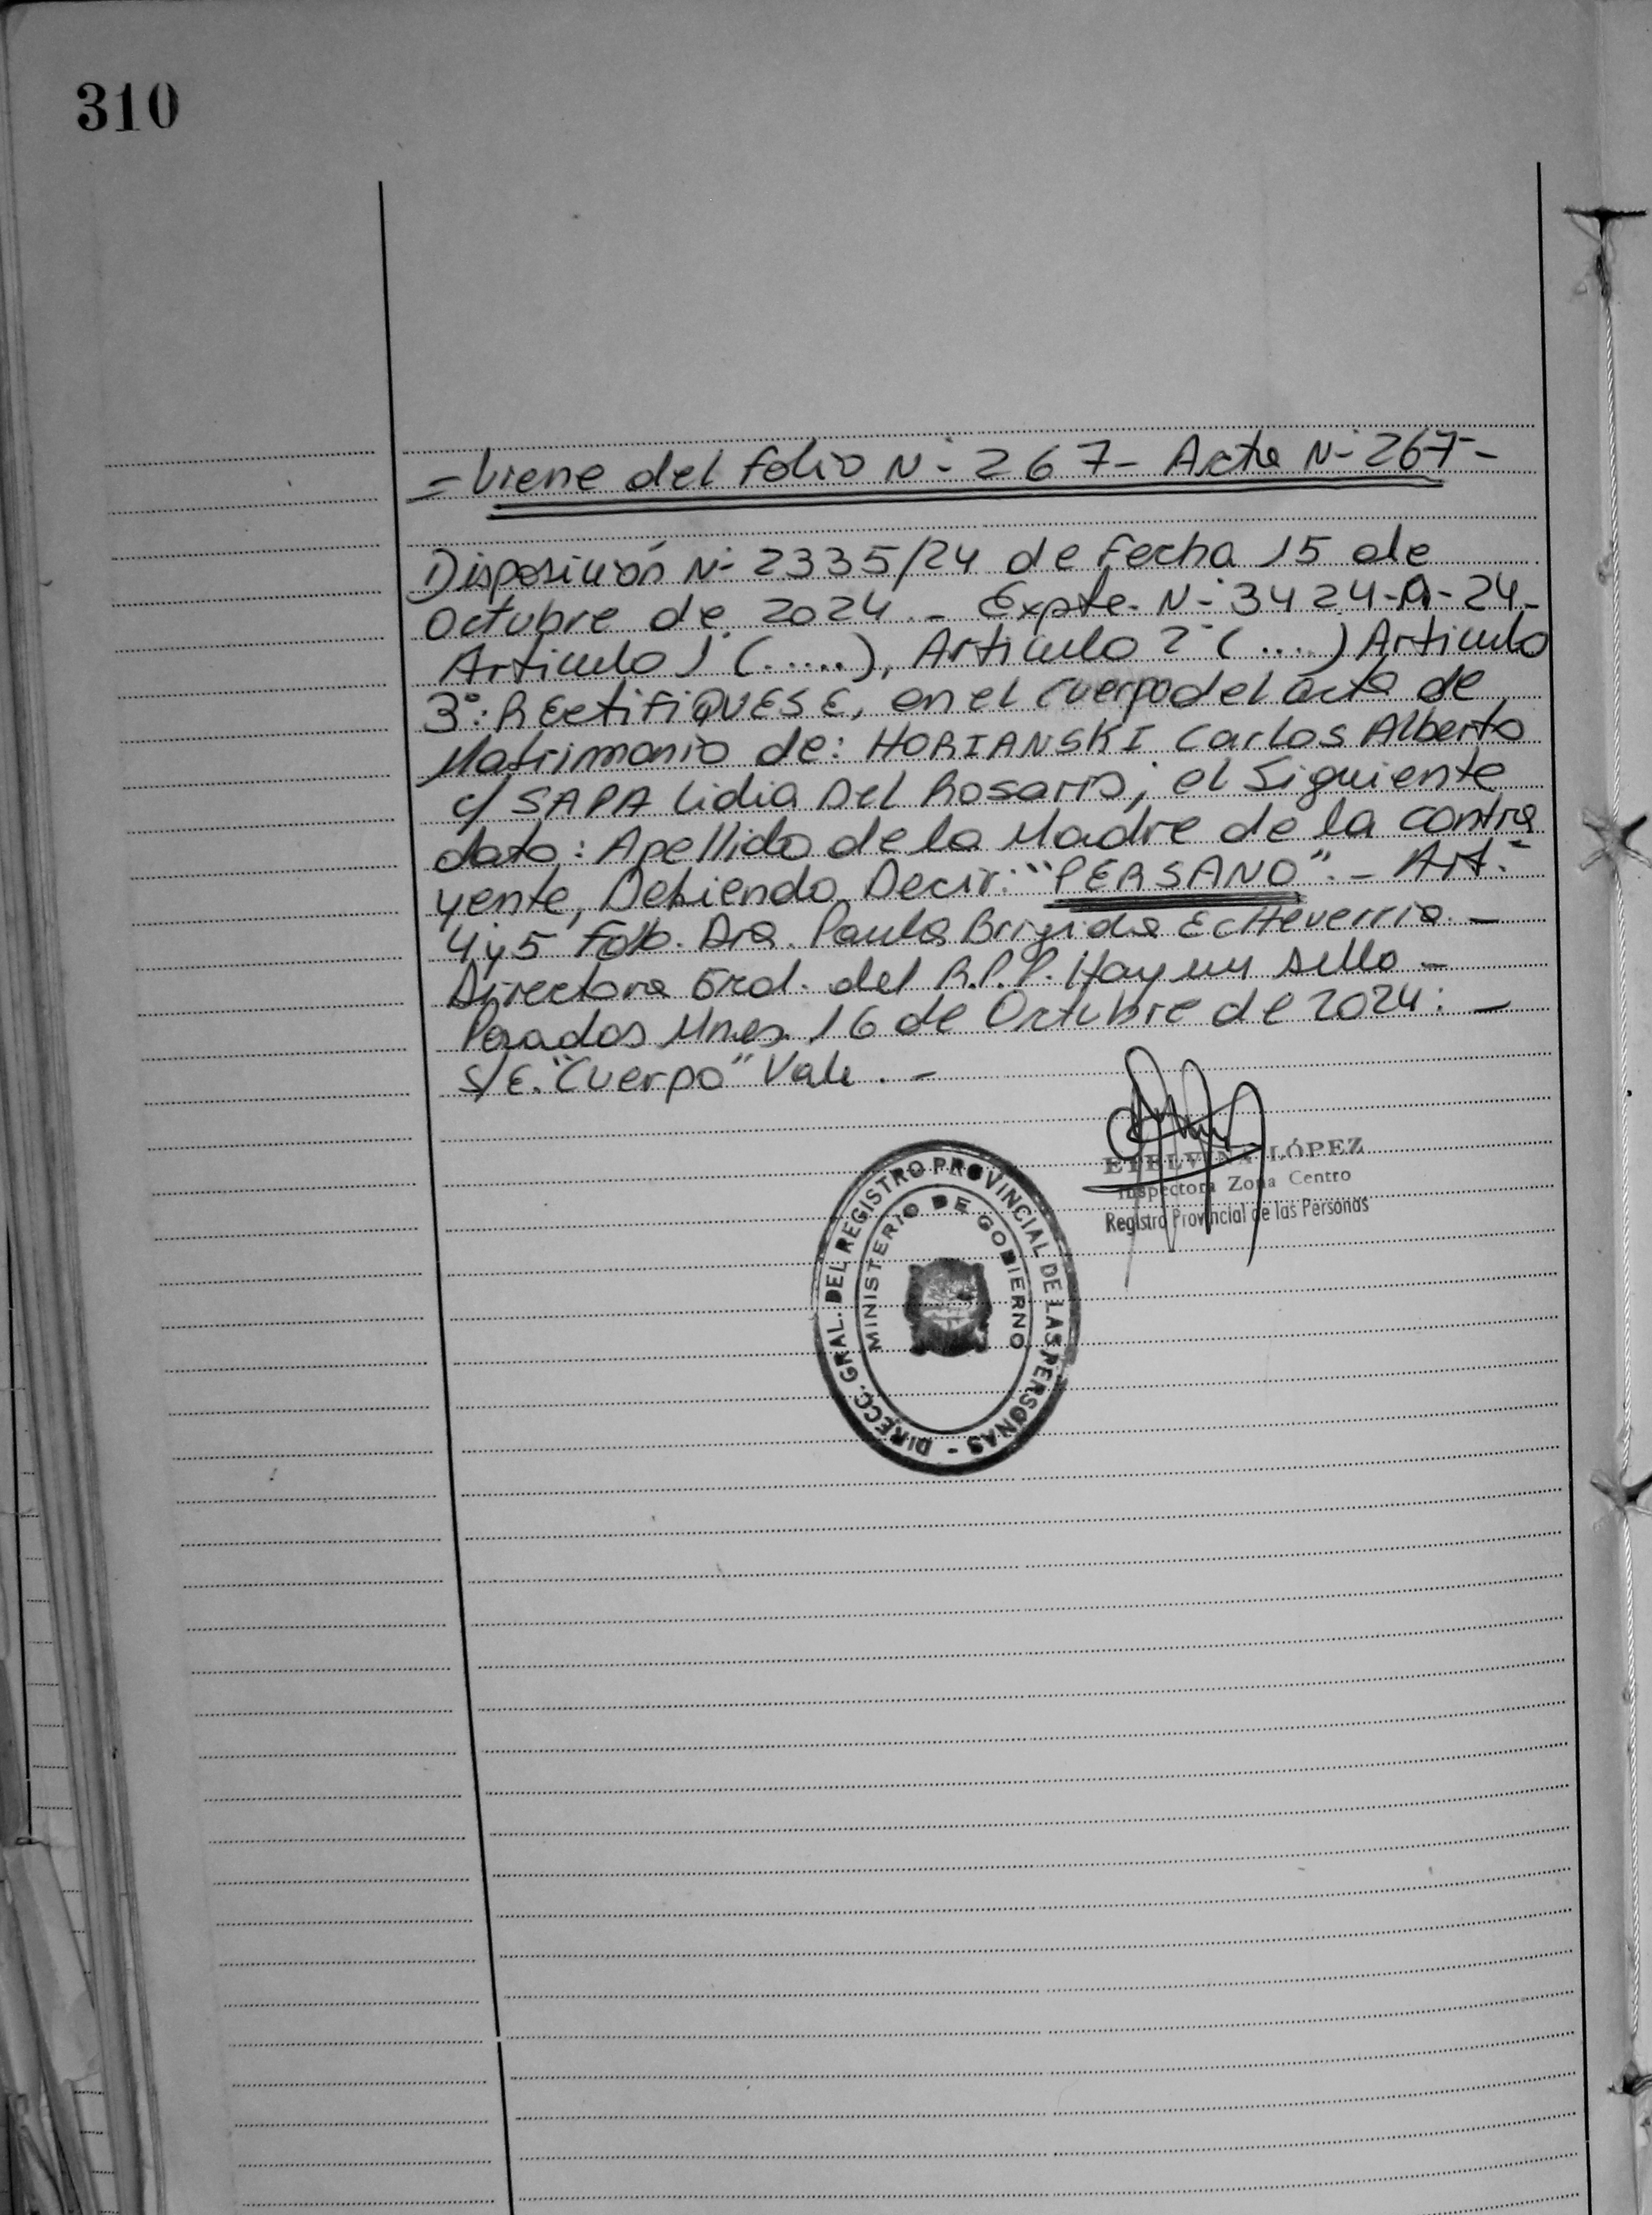 310
= Viene del folio N- 267- Acta N- 267-
Disposición N- 2335/24 de Fecha 15 de
Octubre de 2024.- Expte. N- 3424-A-24-
Articulo 1 (.....), Articulo 2° (....) Articulo
3°: REctiFiQUESE, en el cuerpo del acta de
Matrimonio de: HORIANSKI Carlos Alberto
c/ SAPA Lidia Del Rosario; el Siguiente
dato: Apellido de la Madre de la contra
yente, Debiendo Decir: "PERSANO".- Art.-
4 y 5 Fdo. Dra. Paula Brigida EcHeverria.-
Directora Gral. del R.P.P. Hay un sello-
Posadas Mnes. 16 de Octubre de 2024:-
S/E. "Cuerpo" Vale.-
ETELVINA LÓPEZ
Inspectora Zona Centro
Registro Provincial de las Personas
DIRECC. GRAL. DEL REGISTRO PROVINCIAL DE LAS PERSONAS -
MINISTERIO DE GOBIERNO